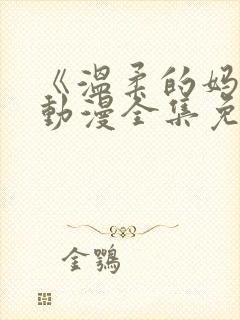 《温柔的妈
动漫全集免
金鹗